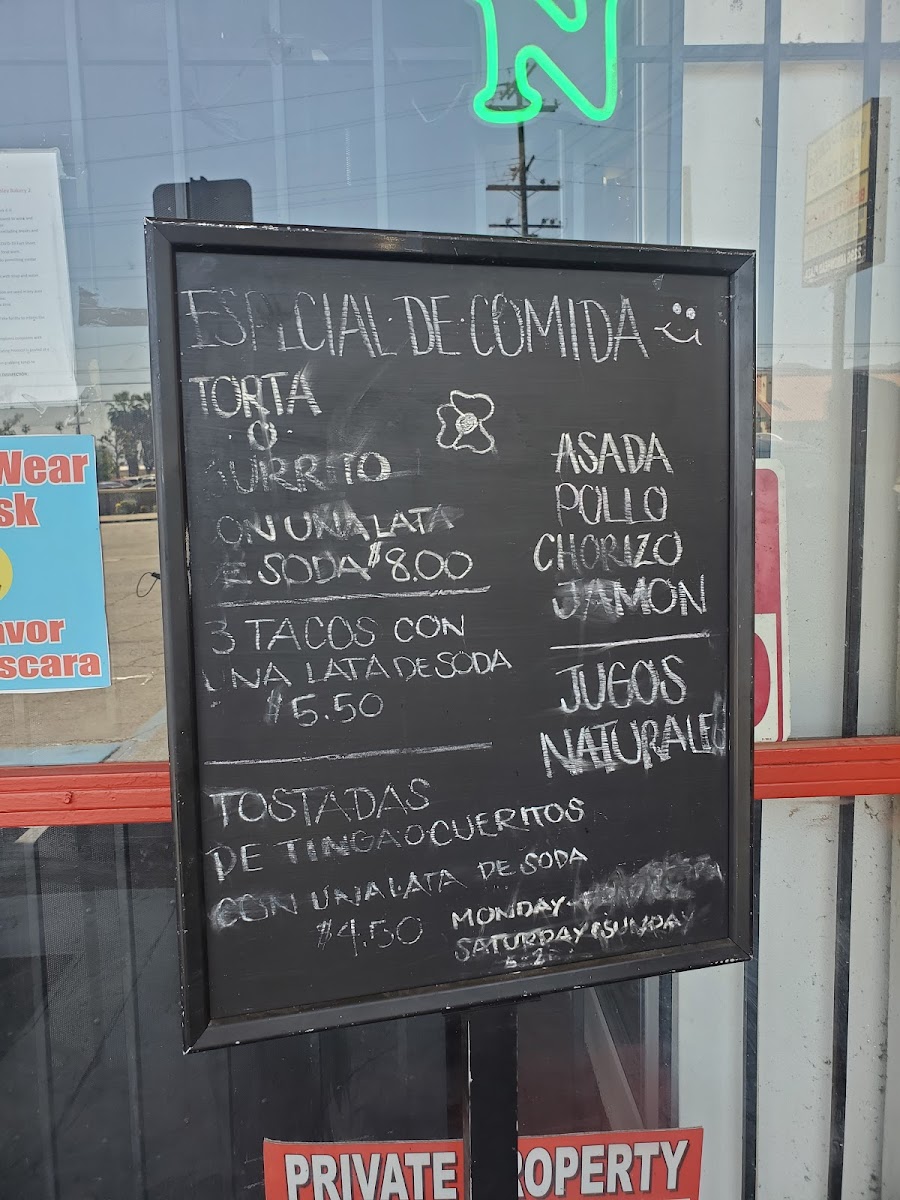 N
ESPECIAL·DE·COMIDA
TORTA
O
BURRITO
CON UNA LATA
DE SODA $8.00
3 TACOS CON
UNA LATA DE SODA
$5.50
TOSTADAS
DE TINGA O CUERITOS
CON UNA LATA DE SODA
$4.50
ASADA
POLLO
CHORIZO
JAMON
JUGOS
NATURALES
MONDAY-
SATURDAY & SUNDAY
Wear
sk
avor
scara
PRIVATE ROPERTY